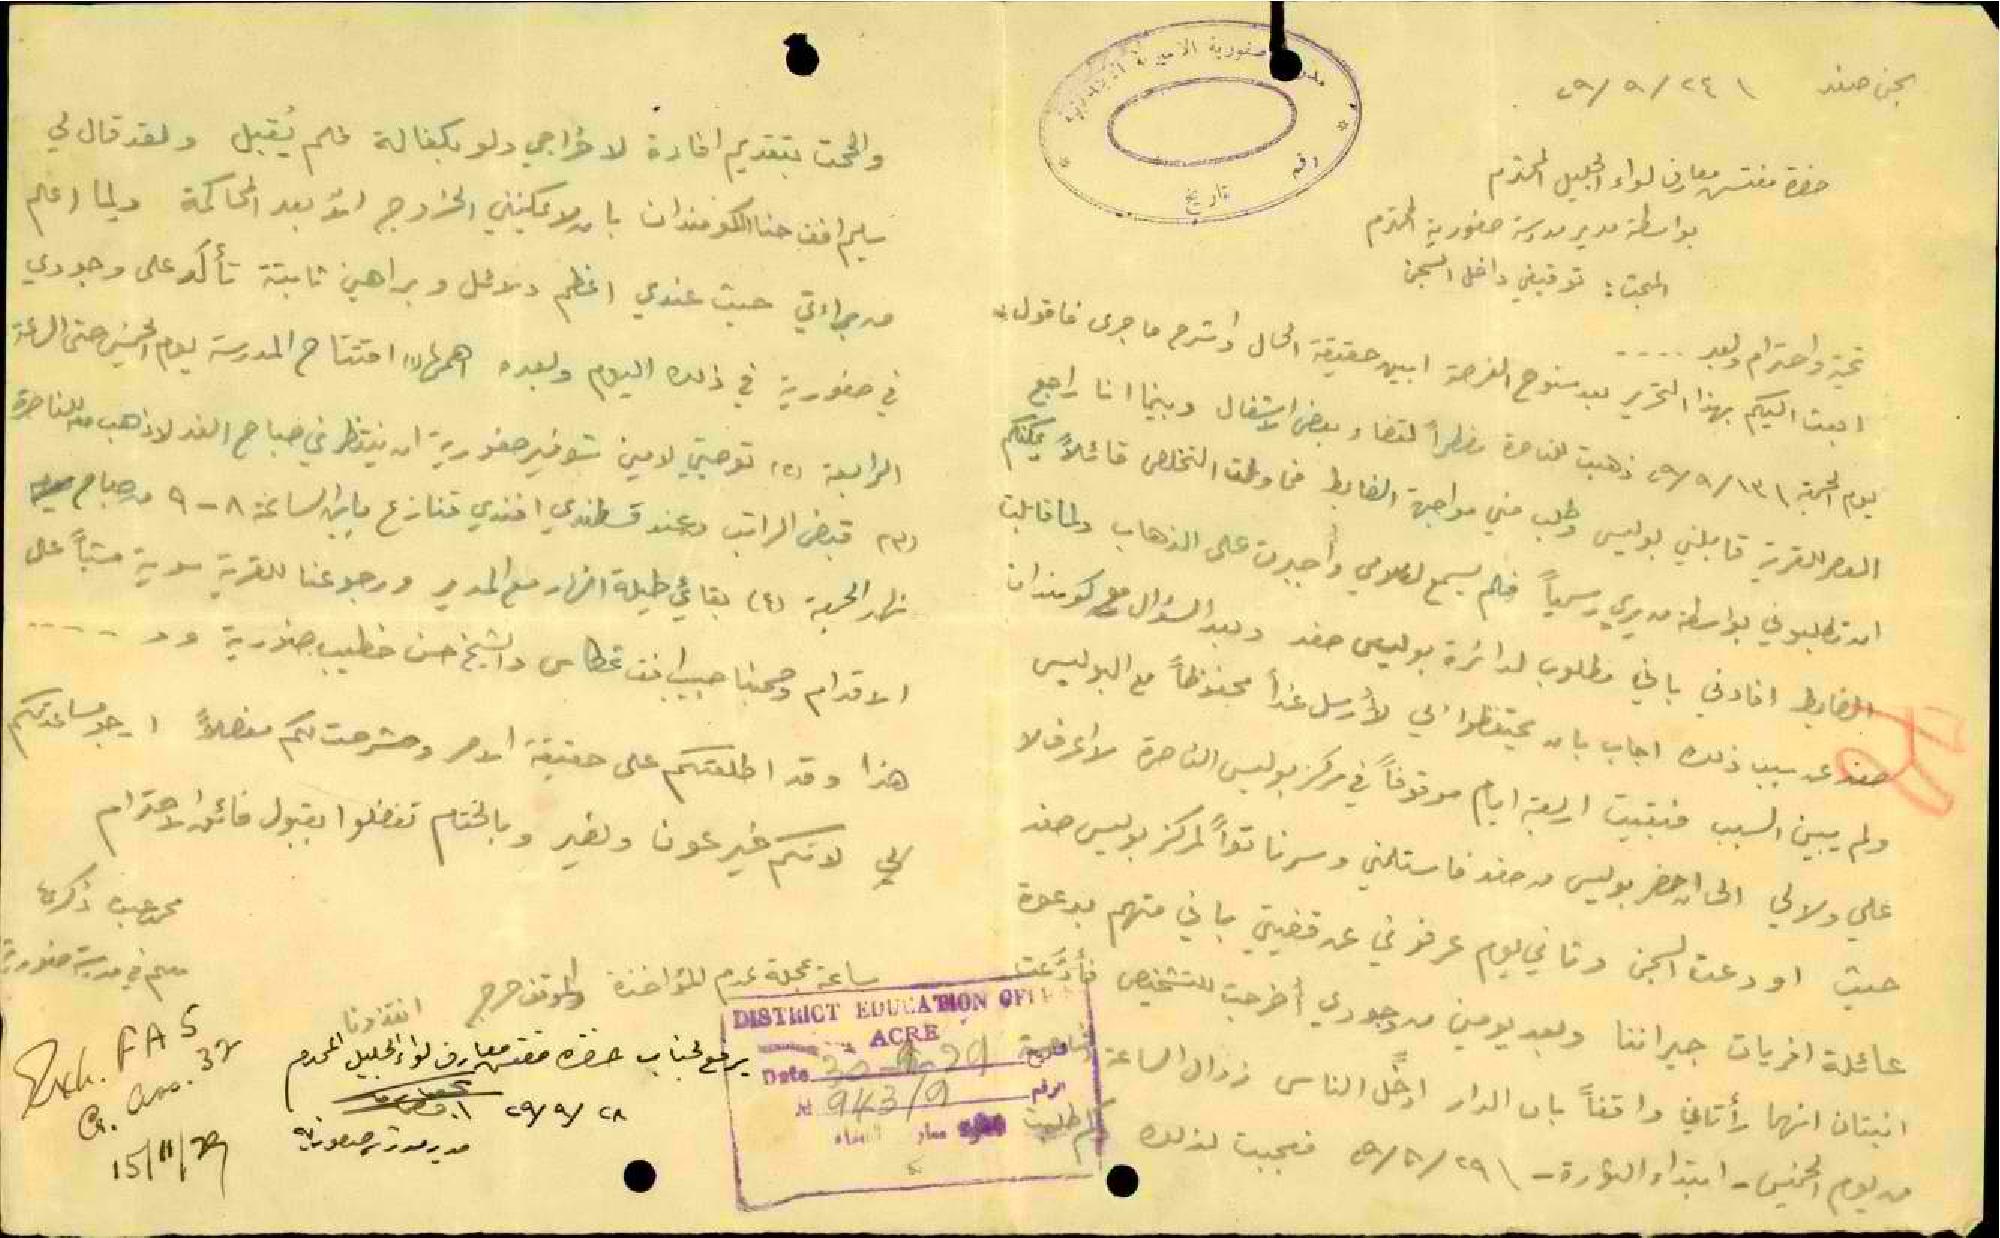 سجن صفد ٢٤ / ٩ / ٢٩
حضرة مفتش معارف لواء الجليل المحترم
بواسطة مدير مدرسة صفورية المحترم
المبحث: توقيفي داخل السجن
تحية واحترام وبعد ....
ابعث اليكم بهذا التحرير بعد سنوح الفرصة ابين حقيقة الحال واشرح ما جرى فاقول:
يوم الجمعة ١٣ / ٩ / ٢٩ ذهبت للناصرة مضطراً لقضاء بعض الاشغال وبينما انا راجع
العصر للقرية قابلني بوليس وطلب مني مواجهة الضابط فحاولت التخلص قائلاً يمكنكم
ان تطلبوني بواسطة مديري رسمياً فلم يسمع لكلامي وأجبرت على الذهاب ولما قابلت
الضابط افادني باني مطلوب لدائرة بوليس صفد وبعد السؤال من كومندان
صفد عن سبب ذلك اجاب بان يحتفظوا بي لأرسل غداً محفوظاً مع البوليس
ولم يبين السبب فبقيت اربعة ايام موقوفاً في مركز بوليس الناصرة لا اعرف لا
علي ولا لي الى ان حضر بوليس من صفد فاستلمني وسرنا تواً لمركز بوليس صفد
حيث اودعت السجن وثاني يوم عرفوني عن قضيتي باني متهم بدعوة
عائلة افريات جيراننا وبعد يومين من وجودي أخرجت للتشخيص فأدّعت
اثنتان انهما رأتاني واقفاً بباب الدار ادخّل الناس زوال الساعة الخامسة
من يوم الخميس - ابتداء الثورة - ٢٩ / ٨ / ٢٩ فعجبت لذلك ثم طلبت
والححت بتقديم افادة لاخراجي ولو بكفالة فلم يُقبل ولقد قال لي
سليم افندي حنا الكومندان بان لا يمكنني الخروج الا بعد المحاكمة ولما اعلم
من براءتي حيث عندي اعظم دلائل وبراهين ثابتة تأكد على وجودي
في صفورية في ذلك اليوم وبعده اهمها (١) افتتاح المدرسة يوم الخميس حتى الساعة
الرابعة (٢) توصيتي لامين شوفير صفورية ان ينتظرني صباح الغد لاذهب معه للناصرة
(٣) قبض الراتب من عند قسطندي افندي قنازع ما بين الساعة ٨ - ٩ من صباح
نهار الجمعة (٤) بقائي طيلة النهار مع المدير ورجوعنا للقرية سوية مشياً على
الاقدام وصحبنا حبيب افندي غطاس والشيخ حسن خطيب صفورية ....
هذا وقد اطلعتكم على حقيقة الامر وشرحت لكم مفصلاً ارجو مساعدتكم
لي لانكم خير عون ونصير وبالختام تفضلوا بقبول فائق الاحترام
محمد عبده ذكرى
معلم في مدرسة صفورية
ساعة عجلة عدم المؤاخذة والموقف حرج انقذونا
يرفع لجناب حضرة مفتش معارف لواء الجليل المحترم
٢٨ / ٩ / ٢٩
مدير مدرسة صفورية
Exh. FA 5
15/11/29
مدرسة صفورية الاميرية
رقم
تاريخ
DISTRICT EDUCATION OFFICE
ACRE
Date 30-9-29
الرقم 943/9